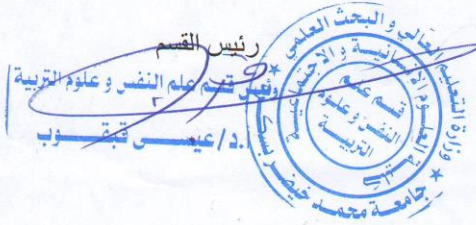 رئيس القسم
رئيس قسم علم النفس و علوم التربية
أ.د/عيســى قبقــوب
وزارة التعليم العالي و البحث العلمي
جامعة محمد خيضر بسكرة
كلية العلوم الانسانية و الاجتماعية
قسم علم
النفس و علوم
التربيــة